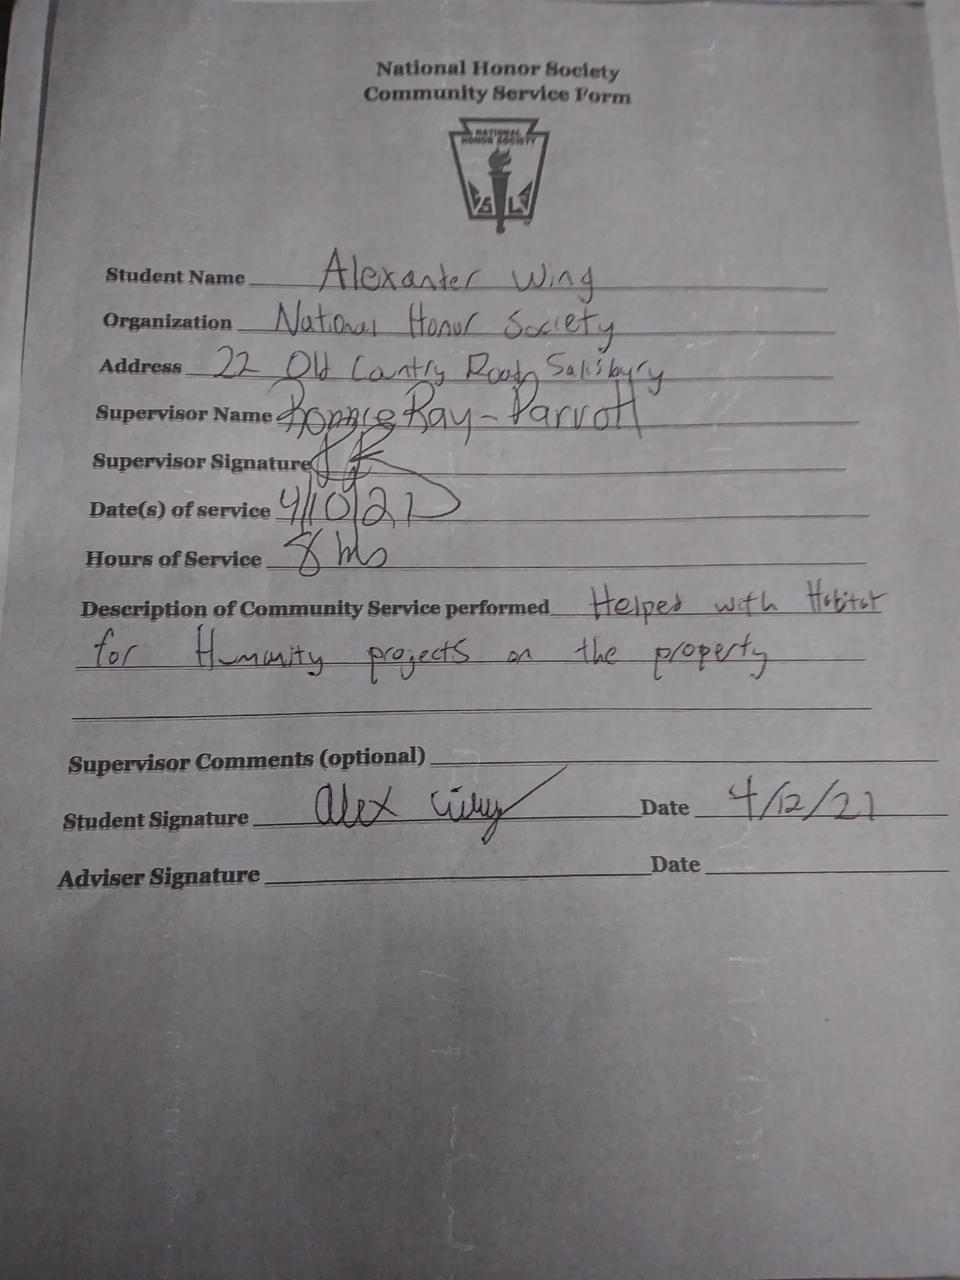 National Honor Society
Community Service Form
NATIONAL
HONOR SOCIETY
S L
Student Name Alexander Wing
Organization National Honor Society
Address 22 Old Country Road, Salisbury
Supervisor Name Ray-Parrott
Supervisor Signature
Date(s) of service 4/10/21
Hours of Service 8 hrs
Description of Community Service performed Helped with Habitat
for Humanity projects on the property
Supervisor Comments (optional)
Student Signature Alex Wing Date 4/12/21
Adviser Signature Date